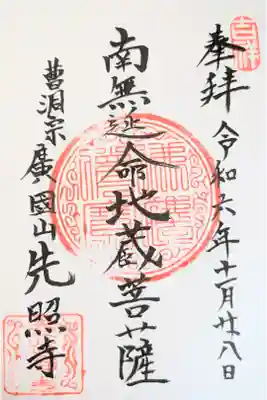 奉拝
令和六年十一月廿八日
南無延命地蔵菩薩
曹洞宗 廣國山 先照寺
吉祥